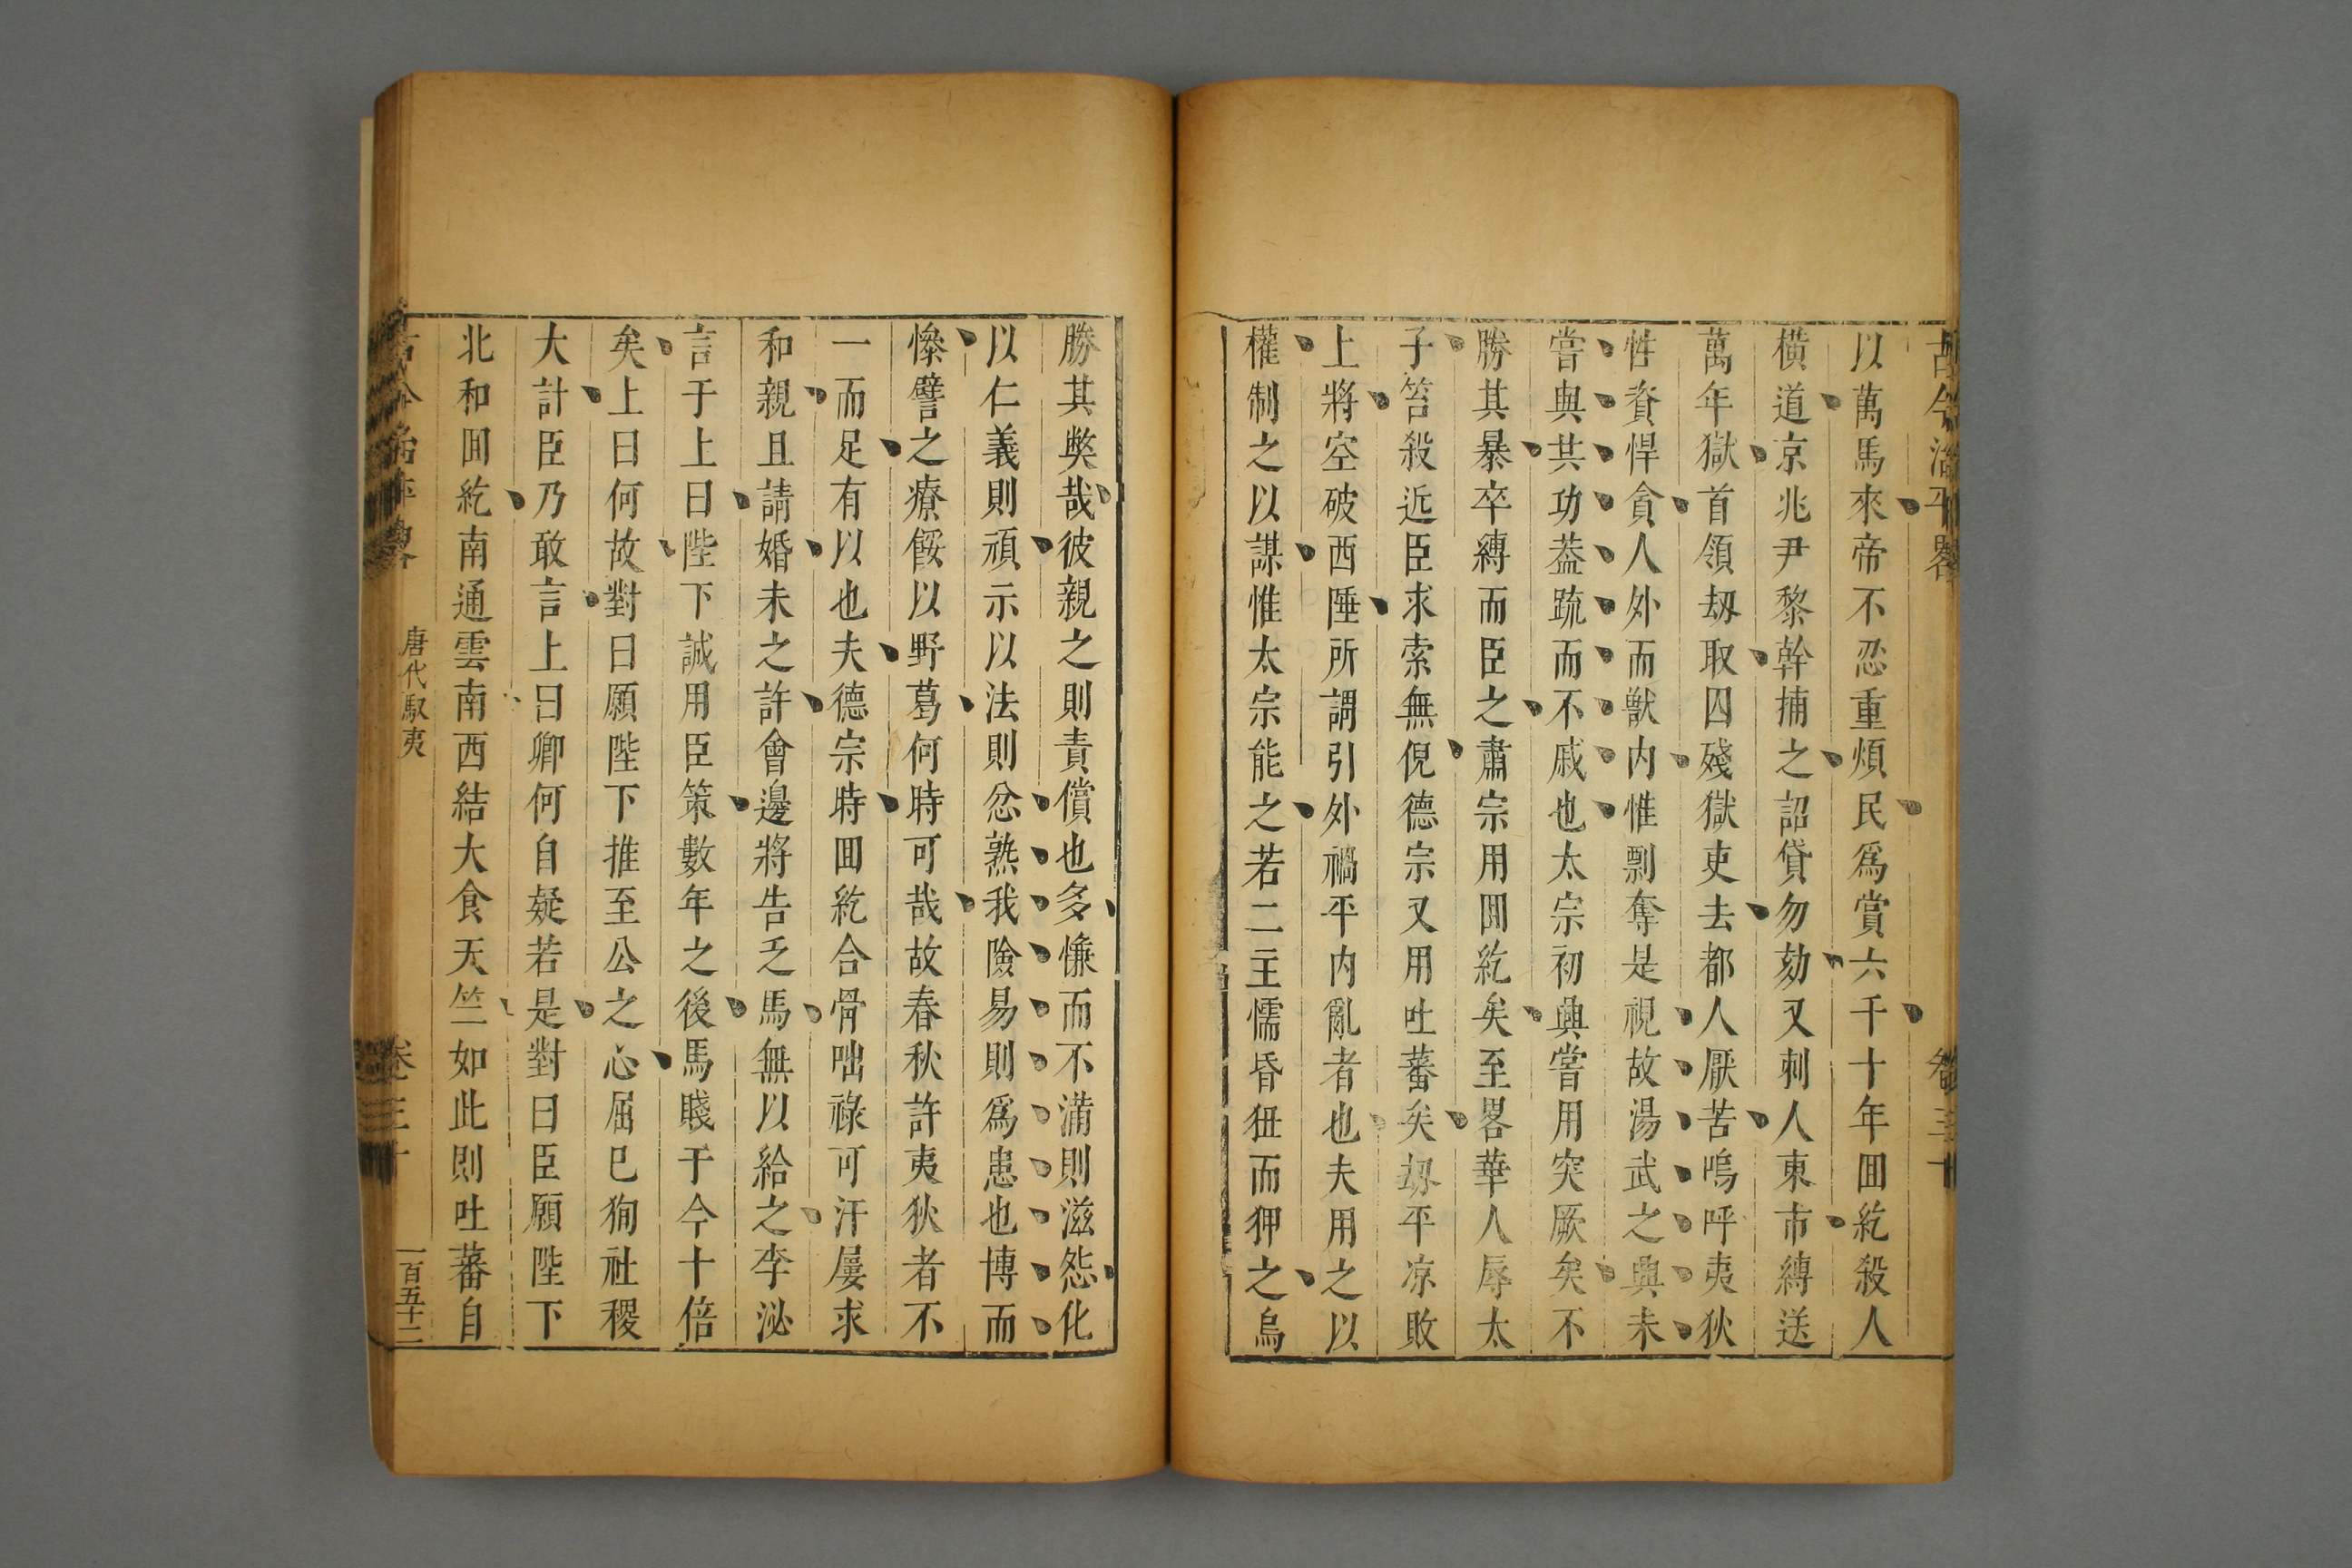 古今治平畧 卷三十
以萬馬來帝不忍重煩民爲賞六千十年回紇殺人
橫道京兆尹黎幹捕之詔貸勿劾又刺人東市縛送
萬年獄首領刼取囚殘獄吏去都人厭苦嗚呼夷狄
性資悍貪人外而獸内惟剽奪是視故湯武之興未
嘗與共功葢疏而不戚也太宗初興嘗用突厥矣不
勝其暴卒縛而臣之肅宗用回紇矣至畧華人辱太
子笞殺近臣求索無倪德宗又用吐蕃矣刼平凉敗
上將空破西陲所謂引外禍平内亂者也夫用之以
權制之以謀惟太宗能之若二主懦昏狃而狎之烏
勝其弊哉彼親之則責償也多慊而不滿則滋怨化
以仁義則頑示以法則忿熟我險易則爲患也博而
慘譬之療餒以野葛何時可哉故春秋許夷狄者不
一而足有以也夫德宗時回紇合骨咄祿可汗屢求
和親且請婚未之許會邊將告乏馬無以給之李泌
言于上曰陛下誠用臣策數年之後馬賤于今十倍
矣上曰何故對曰願陛下推至公之心屈已徇社稷
大計臣乃敢言上曰卿何自疑若是對曰臣願陛下
北和回紇南通雲南西結大食天竺如此則吐蕃自
古今治平畧 唐代馭夷 卷三十 一百五十二